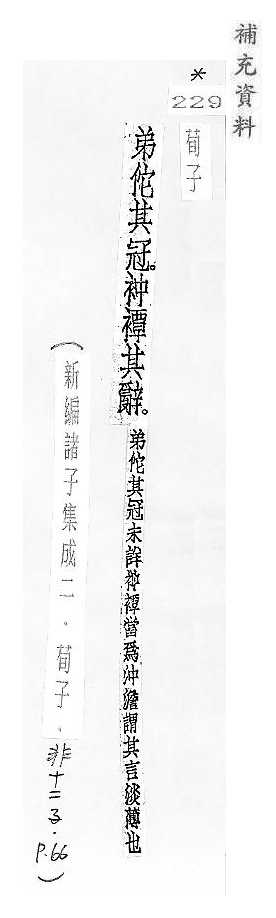 補充資料
*
229
荀子
弟佗其冠。衶禫其辭。弟佗其冠未詳衶禫當爲沖澹謂其言淡薄也
(新編諸子集成二.荀子.非十二子.P.66)